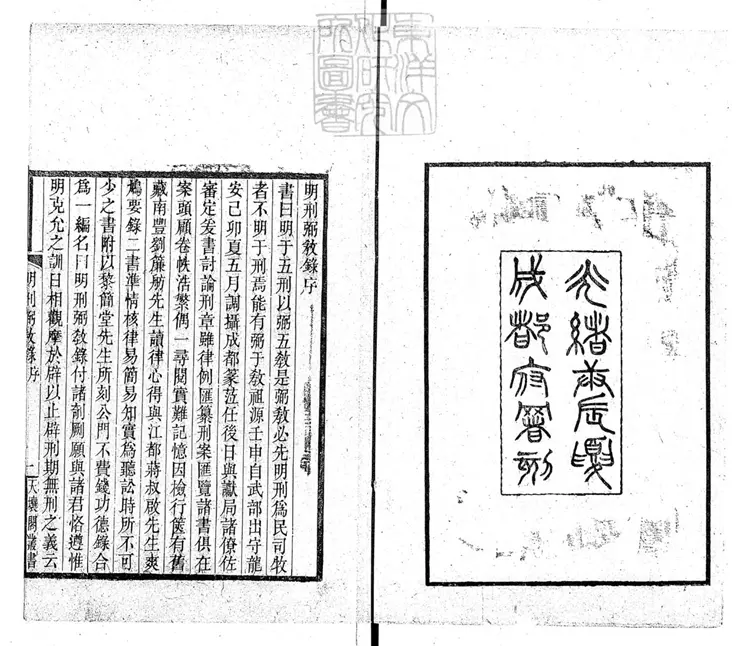 東洋文
化研究
所圖書
光緒庚辰夏
成都府署刻
明刑弼敎錄序
書曰明于五刑以弼五敎是弼敎必先明刑爲民司牧
者不明于刑焉能有弼于敎祖源壬申自武部出守龍
安己卯夏五月調攝成都篆蒞任後日與讞局諸僚佐
審定爰書討論刑章雖律例匯纂刑案匯覽諸書俱在
案頭顧卷帙浩繁偶一尋閱實難記憶因檢行篋有舊
藏南豐劉簾舫先生讀律心得與江都蔣叔啟先生爽
鳩要錄二書準情核律易簡易知實爲聽訟時所不可
少之書附以黎簡堂先生所刻公門不費錢功德錄合
爲一編名曰明刑弼敎錄付諸剞劂願與諸君恪遵惟
明克允之訓日相觀摩於辟以止辟刑期無刑之義云
明刑弼敎錄序
一
天壤閣叢書